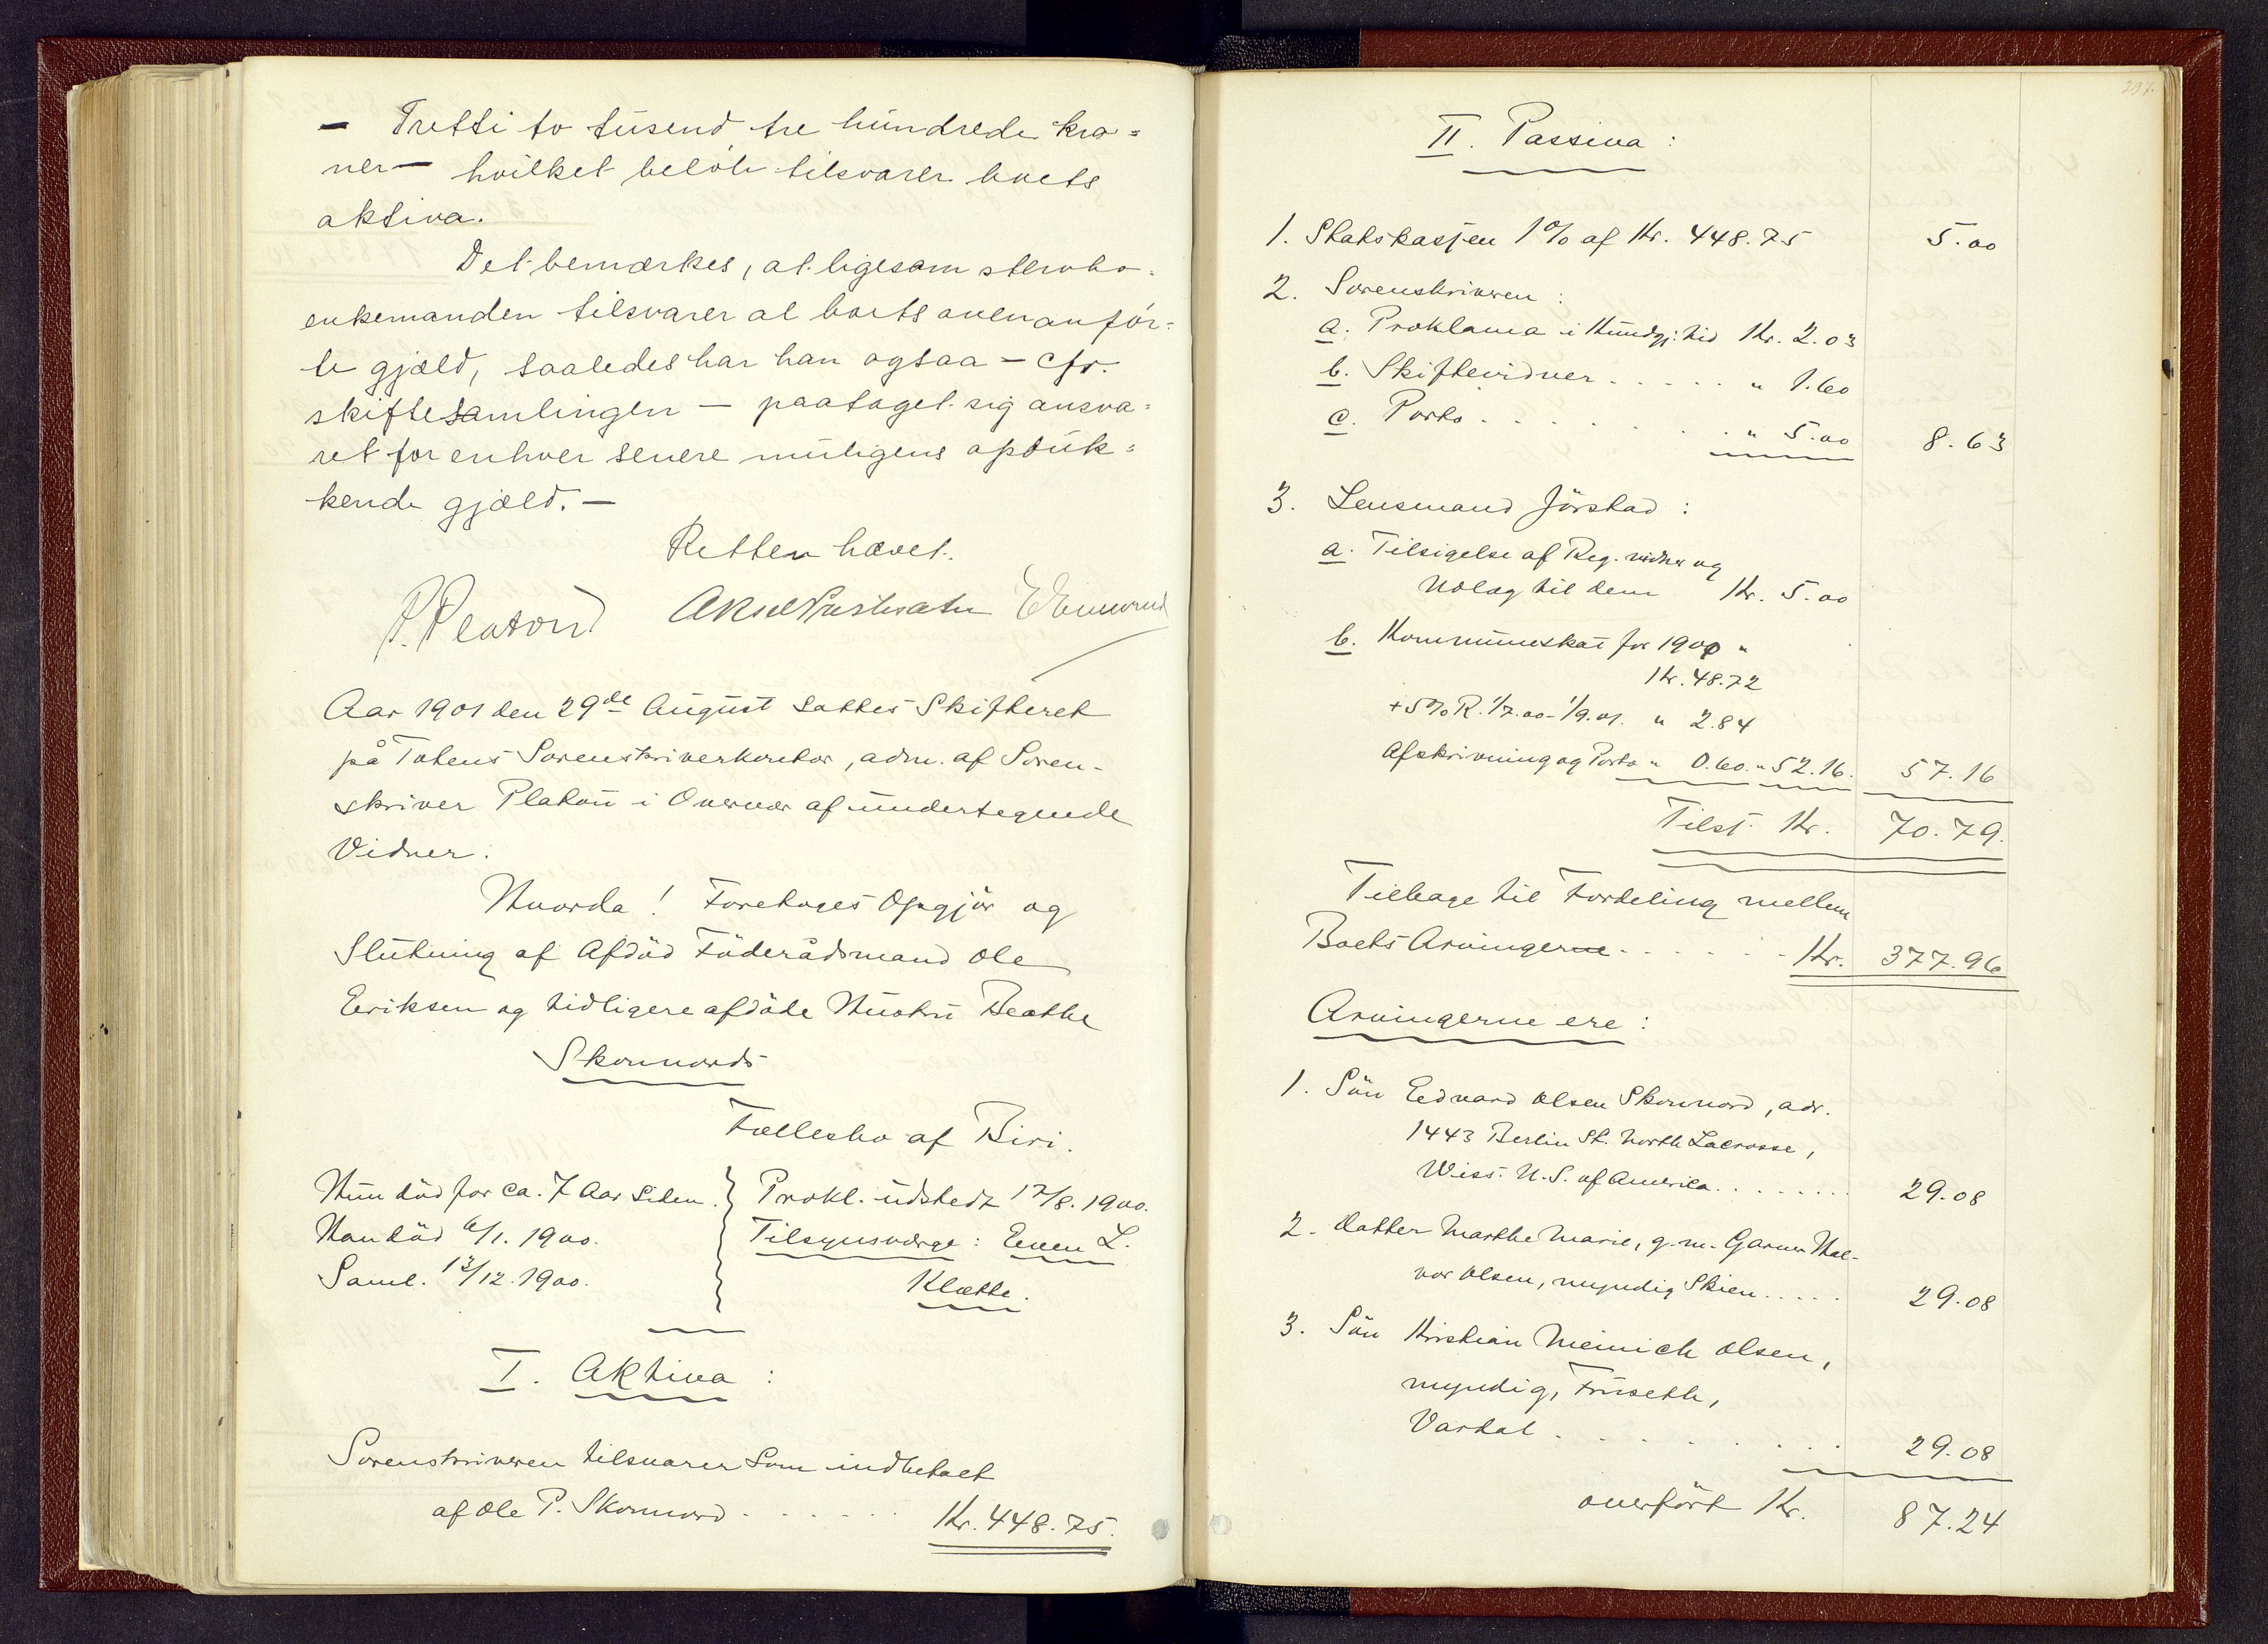 — Tretti to tusend tre hundrede kro=
ner — hvilket beløb tilsvarer boets
aktiva.
Det bemærkes, at ligesom stervbo-
enkemanden tilsvarer al boets ovenanför=
te gjæld, saaledes har han ogsaa — cfr.
skiftesamlingen — paataget sig ansva=
ret for enhver senere muligens opduk=
kende gjæld. —
Retten hævet.
P. Platou
Aar 1901 den 29de August sattes Skifteret
på Totens Sorenskriverkontor, adm. af Soren-
skriver Platou i Overvær af undertegnede
Vidner.
Hvorda! Foretoges Opgjör og
Slutning af Afdöd Föderådsmand Ole
Eriksen og tidligere afdöde Hustru Beathe
Skonnords
Fællesbo af Biri.
Hun död for ca. 7 Aar siden.
Han död 6/1. 1900.
Saml. 13/12. 1900.
Prokl. udstedt 17/8. 1900.
Tilsynsværge: Even L.
Klætte.
I. Aktiva:
Sorenskriveren tilsvarer som indbetalt
af Ole P. Skonnord . . . . . . Kr. 448.75.
297.
II. Passiva:
1. Statskassen 1% af Kr. 448.75 5.00
2. Sorenskriveren:
a. Proklama i Kundgj: tid Kr. 2.03
b. Skiftevidner . . . . . " 1.60
c. Porto . . . . . . . . " 5.00 8.63
3. Lensmand Jörstad:
a. Tilsigelse af Reg. vidner og
Udlæg til dem Kr. 5.00
b. Kommuneskat for 1900 "
Kr. 48.72
+ 5% R. 1/7.00 - 1/9.01. " 2.84
Afskrivning og Porto " 0.60. " 52.16. 57.16
Tilst. Kr. 70.79.
Tilbage til Fordeling mellem
Boets Arvinger . . . . . . Kr. 377.96
Arvingerne ere:
1. Sön Edvard Olsen Skonnord, adr.
1443 Berlin St. North Lacrosse,
Wiss. U. S. of America . . . . . . 29.08
2. Datter Marthe Marie, g. m. Garver Hal-
vor Olsen, myndig Skien . . . . . 29.08
3. Sön Kristian Meinich Olsen,
myndig, Fruseth,
Vardal . . . . . . . . 29.08
overfört Kr. 87.24